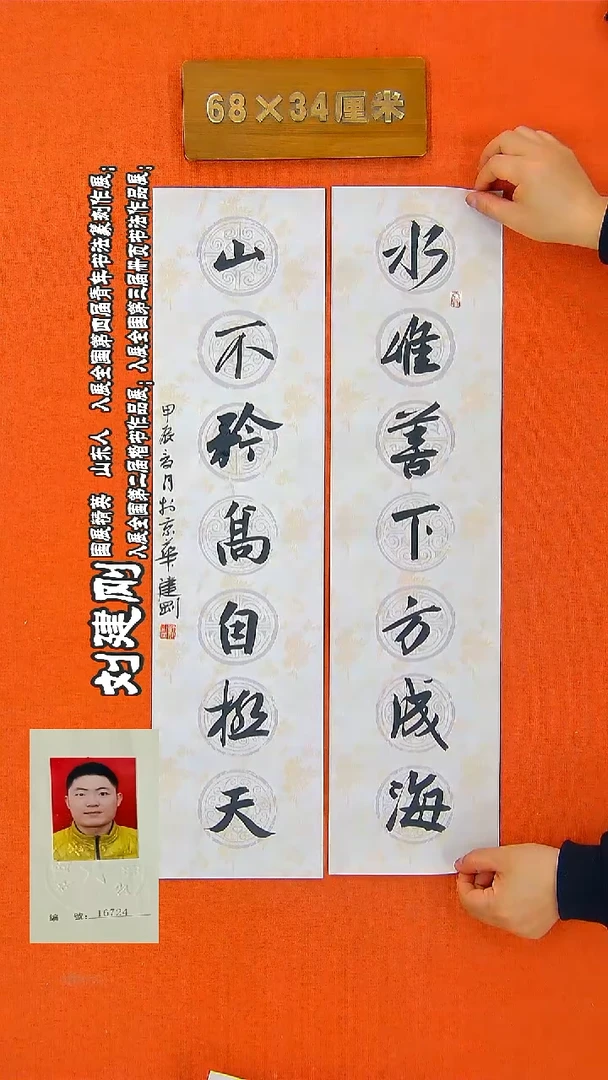 68×34厘米
水惟善下方成海
山不矜高自极天
甲辰
月於京华 建刚
国展精英 山东人 入展全国第四届青年书法篆刻作展；
入展全国第二届楷书作品展；入展全国第三届册页书法作品展；
刘建刚
编 号：16724